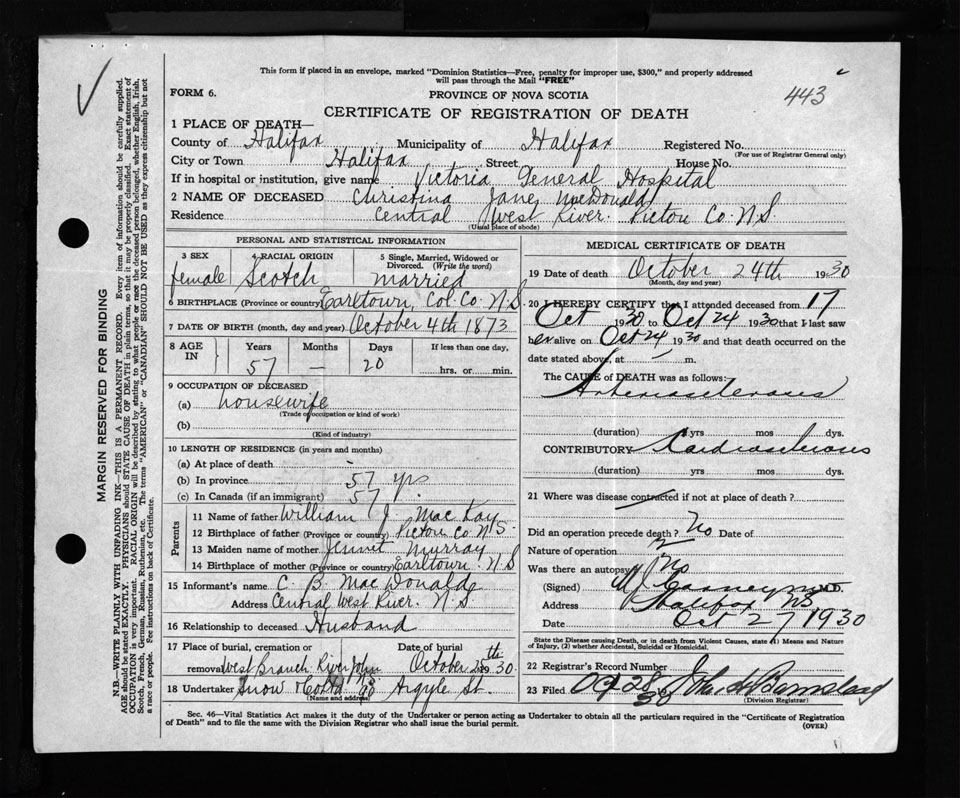 This form if placed in an envelope, marked "Dominion Statistics—Free, penalty for improper use, $300," and properly addressed
will pass through the Mail "FREE"
FORM 6.
PROVINCE OF NOVA SCOTIA
443
CERTIFICATE OF REGISTRATION OF DEATH
1 PLACE OF DEATH—
County of Halifax Municipality of Halifax Registered No.
(For use of Registrar General only)
City or Town Halifax Street House No.
If in hospital or institution, give name Victoria General Hospital
2 NAME OF DECEASED Christina Jane MacDonald
Residence Central West River. Pictou Co. N.S.
(Usual place of abode)
PERSONAL AND STATISTICAL INFORMATION
3 SEX 4 RACIAL ORIGIN 5 Single, Married, Widowed or Divorced. (Write the word)
female Scotch Married
6 BIRTHPLACE (Province or country) Earltown, Col. Co. N.S.
7 DATE OF BIRTH (month, day and year) October 4th 1873
8 AGE IN Years Months Days If less than one day,
57 — 20 hrs. or min.
9 OCCUPATION OF DECEASED
(a) housewife
(Trade or occupation or kind of work)
(b)
(Kind of industry)
10 LENGTH OF RESIDENCE (in years and months)
(a) At place of death -
(b) In province 57 yrs
(c) In Canada (if an immigrant) 57
Parents
11 Name of father William J. MacKay
12 Birthplace of father (Province or country) Pictou Co N.S.
13 Maiden name of mother Jennet Murray
14 Birthplace of mother (Province or country) Earltown. N.S
15 Informant's name C. B. MacDonald
Address Central West River. N.S
16 Relationship to deceased Husband
17 Place of burial, cremation or removal West Branch River John Date of burial October 25th 1930
18 Undertaker Snow 90 Argyle St.
(Name and address)
MEDICAL CERTIFICATE OF DEATH
19 Date of death October 24th 1930
(Month, day and year)
20 I HEREBY CERTIFY that I attended deceased from 17
Oct 1930 to Oct 24 1930 that I last saw
her alive on Oct 24 1930 and that death occurred on the
date stated above, at — m.
The CAUSE of DEATH was as follows:
Arteriosclerosis
(duration) yrs mos dys.
CONTRIBUTORY Cardiosclerosis
(duration) yrs mos dys.
21 Where was disease contracted if not at place of death?
Did an operation precede death? No Date of
Nature of operation
Was there an autopsy? No
(Signed) M.D.
Address Halifax NS
Date Oct 27 1930
State the Disease causing Death, or in death from Violent Causes, state (1) Means and Nature
of Injury, (2) whether Accidental, Suicidal or Homicidal.
22 Registrar's Record Number
23 Filed Oct 28 30 John
(Division Registrar)
Sec. 46—Vital Statistics Act makes it the duty of the Undertaker or person acting as Undertaker to obtain all the particulars required in the "Certificate of Registration
of Death" and to file the same with the Division Registrar who shall issue the burial permit.
(OVER)
MARGIN RESERVED FOR BINDING
N.B.—WRITE PLAINLY WITH UNFADING INK—THIS IS A PERMANENT RECORD. Every item of information should be carefully supplied.
AGE should be stated EXACTLY. PHYSICIANS should STATE CAUSE OF DEATH in plain terms, so that it may be properly classified. Exact statement of
OCCUPATION is very important. RACIAL ORIGIN will be described by stating to what people or race the deceased person belonged, whether English, Irish,
Scotch, French, German, Russian, Ruthenian, etc. The terms "AMERICAN" or "CANADIAN" SHOULD NOT BE USED as they express citizenship but not
a race or people. See instructions on back of Certificate.